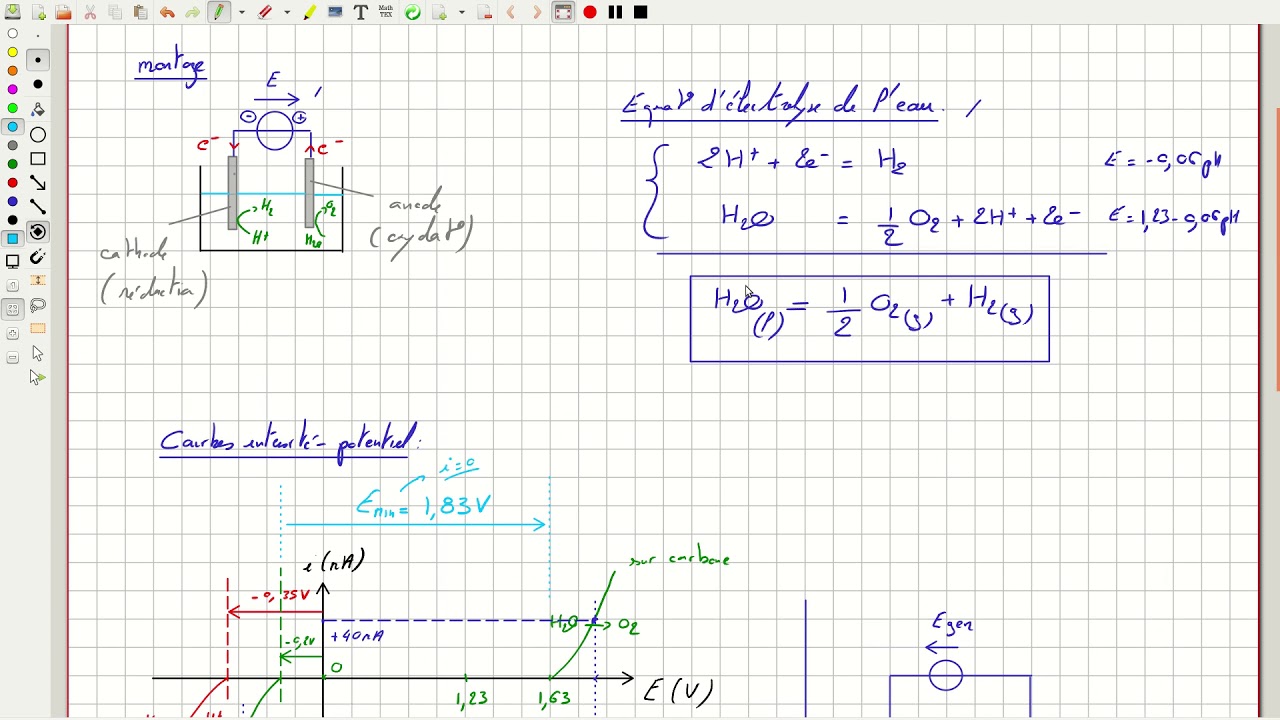 Math
TEX
T
montage
E
⊖ ⊕
e⁻ e⁻
H₂ O₂
H⁺ H₂O
cathode
(réduction)
anode
(oydat°)
Equat° d'électrolyse de l'eau.
2H⁺ + 2e⁻ = H₂ E = -0,06pH
H₂O = 1/2 O₂ + 2H⁺ + 2e⁻ E = 1,23 - 0,06pH
H₂O(l) = 1/2 O₂(g) + H₂(g)
Courbes intensité-potentiel:
i=0
Emin = 1,83 V
i(mA)
sur carbone
-0,35V
H₂O → O₂
+40mA
-0,2V
0
1,23 1,63 E(V)
Egen